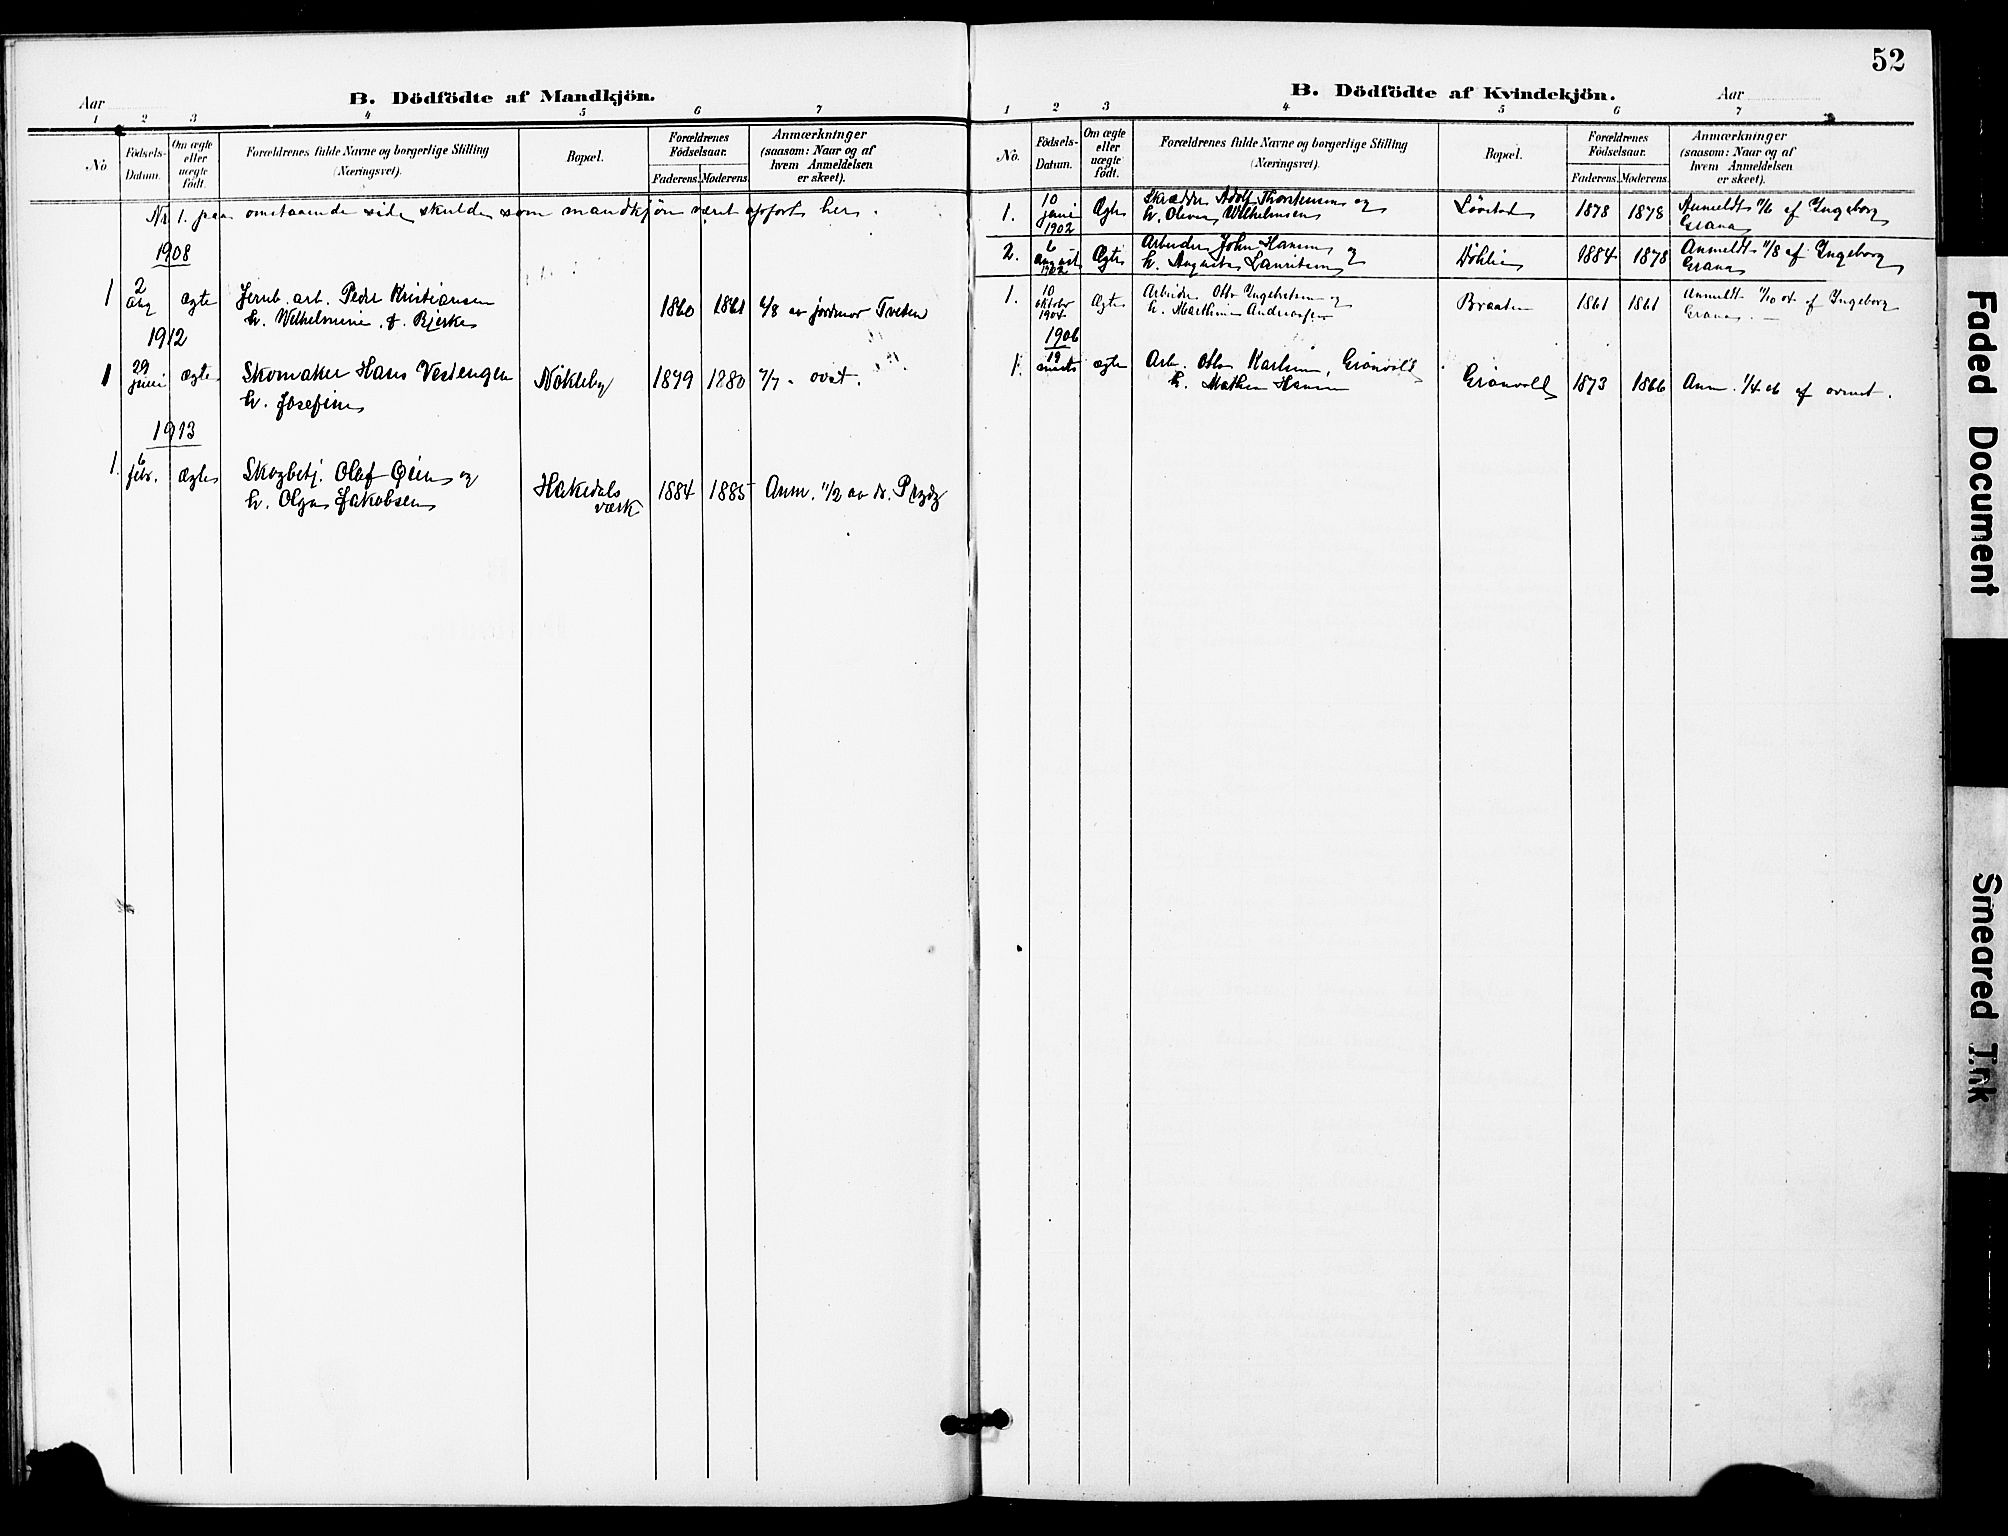 Aar
B. Dödfödte af Mandkjön.
1 2 3 4 5 6 7
No.
Födsels-Datum.
Om ægte eller uægte født.
Forældrenes fulde Navne og borgerlige Stilling
(Næringsvei).
Bopæl.
Forældrenes Födselsaar.
Faderens. Moderens.
Anmærkninger
(saasom: Naar og af
hvem Anmeldelsen
er skeet).
Nr 1. paa omstaaende side skulde som mandkjøn været opført her.
1908
1 2 aug ægte Jernb. arb. Peder Kristiansen 1860 1861 6/8 av jordmor Tveten
h. Wilhelmine Bjerke
1912
1 29 juni ægte Skomaker Hans Vestengen Nökleby 1879 1880 7/7 - ovst.
h. Josefine
1913
1. 6 febr. ægte Skogbetj. Olaf Øien og Hakedals 1884 1885 Anm. 11/2 av dr. Prydz
h. Olga Jakobsen værk
52
B. Dödfödte af Kvindekjön.
Aar
1 2 3 4 5 6 7
No.
Födsels-Datum.
Om ægte eller uægte födt.
Forældrenes fulde Navne og borgerlige Stilling
(Næringsvei).
Bopæl.
Forældrenes Födselsaar.
Faderens. Moderens.
Anmærkninger
(saasom: Naar og af
hvem Anmeldelsen
er skeet).
1. 10 juni 1902 Ægte Skrædder Adolf Thorstensen og Løvstad 1878 1878 Anmeldt 11/6 af Ingeborg
h. Oliva Wilhelmsen Grana
2. 6 august 1902 Ægte Arbeider John Hansen og Döhlin 1884 1878 Anmeldt 11/8 af Ingeborg
h. Augusta Lauritsen Grana
1. 10 oktober 1904 Ægte Arbeider Otto Ingebretsen og Braaten 1861 1861 Anmeldt 11/10 04 af Ingeborg
h. Marthine Andreassen Grana
1906
1. 19 marts ægte Arb. Otto Karlsen, Grønvold Grønvold 1873 1866 Anm. 1/4 06 af ovennt.
h. Mathea Hansen
Faded Document
Smeared Ink